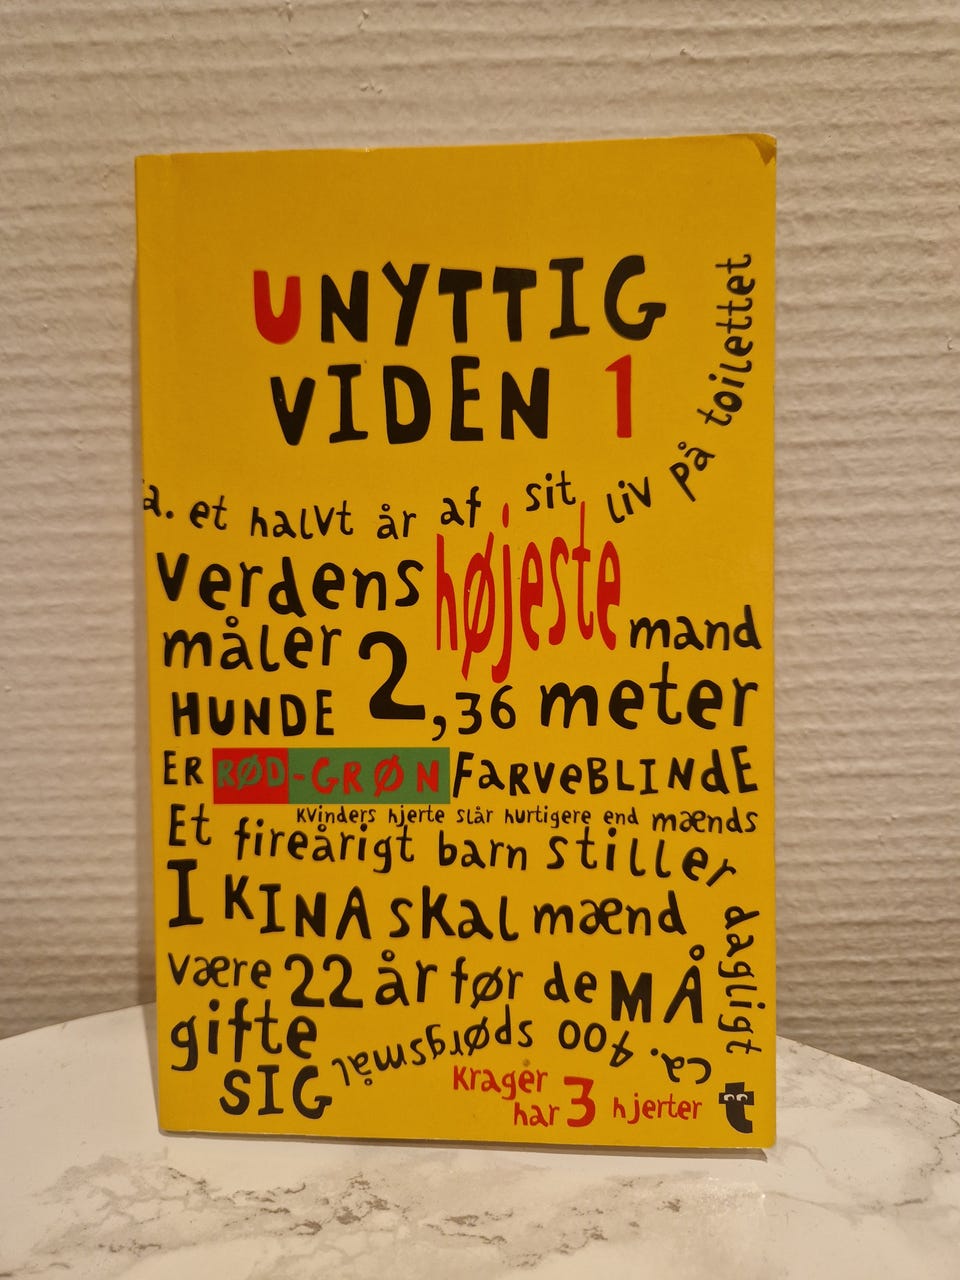 UNYTTIG
VIDEN 1
a. et halvt år af sit liv på toilettet
verdens højeste mand
måler 2,36 meter
HUNDE
ER RØD-GRØN FARVEBLINDE
Kvinders hjerte slår hurtigere end mænds
Et fireårigt barn stiller dagligt ca. 400 spørgsmål
I KINA skal mænd
være 22 år før de MÅ
gifte
SIG
Krager
har 3 hjerter
t